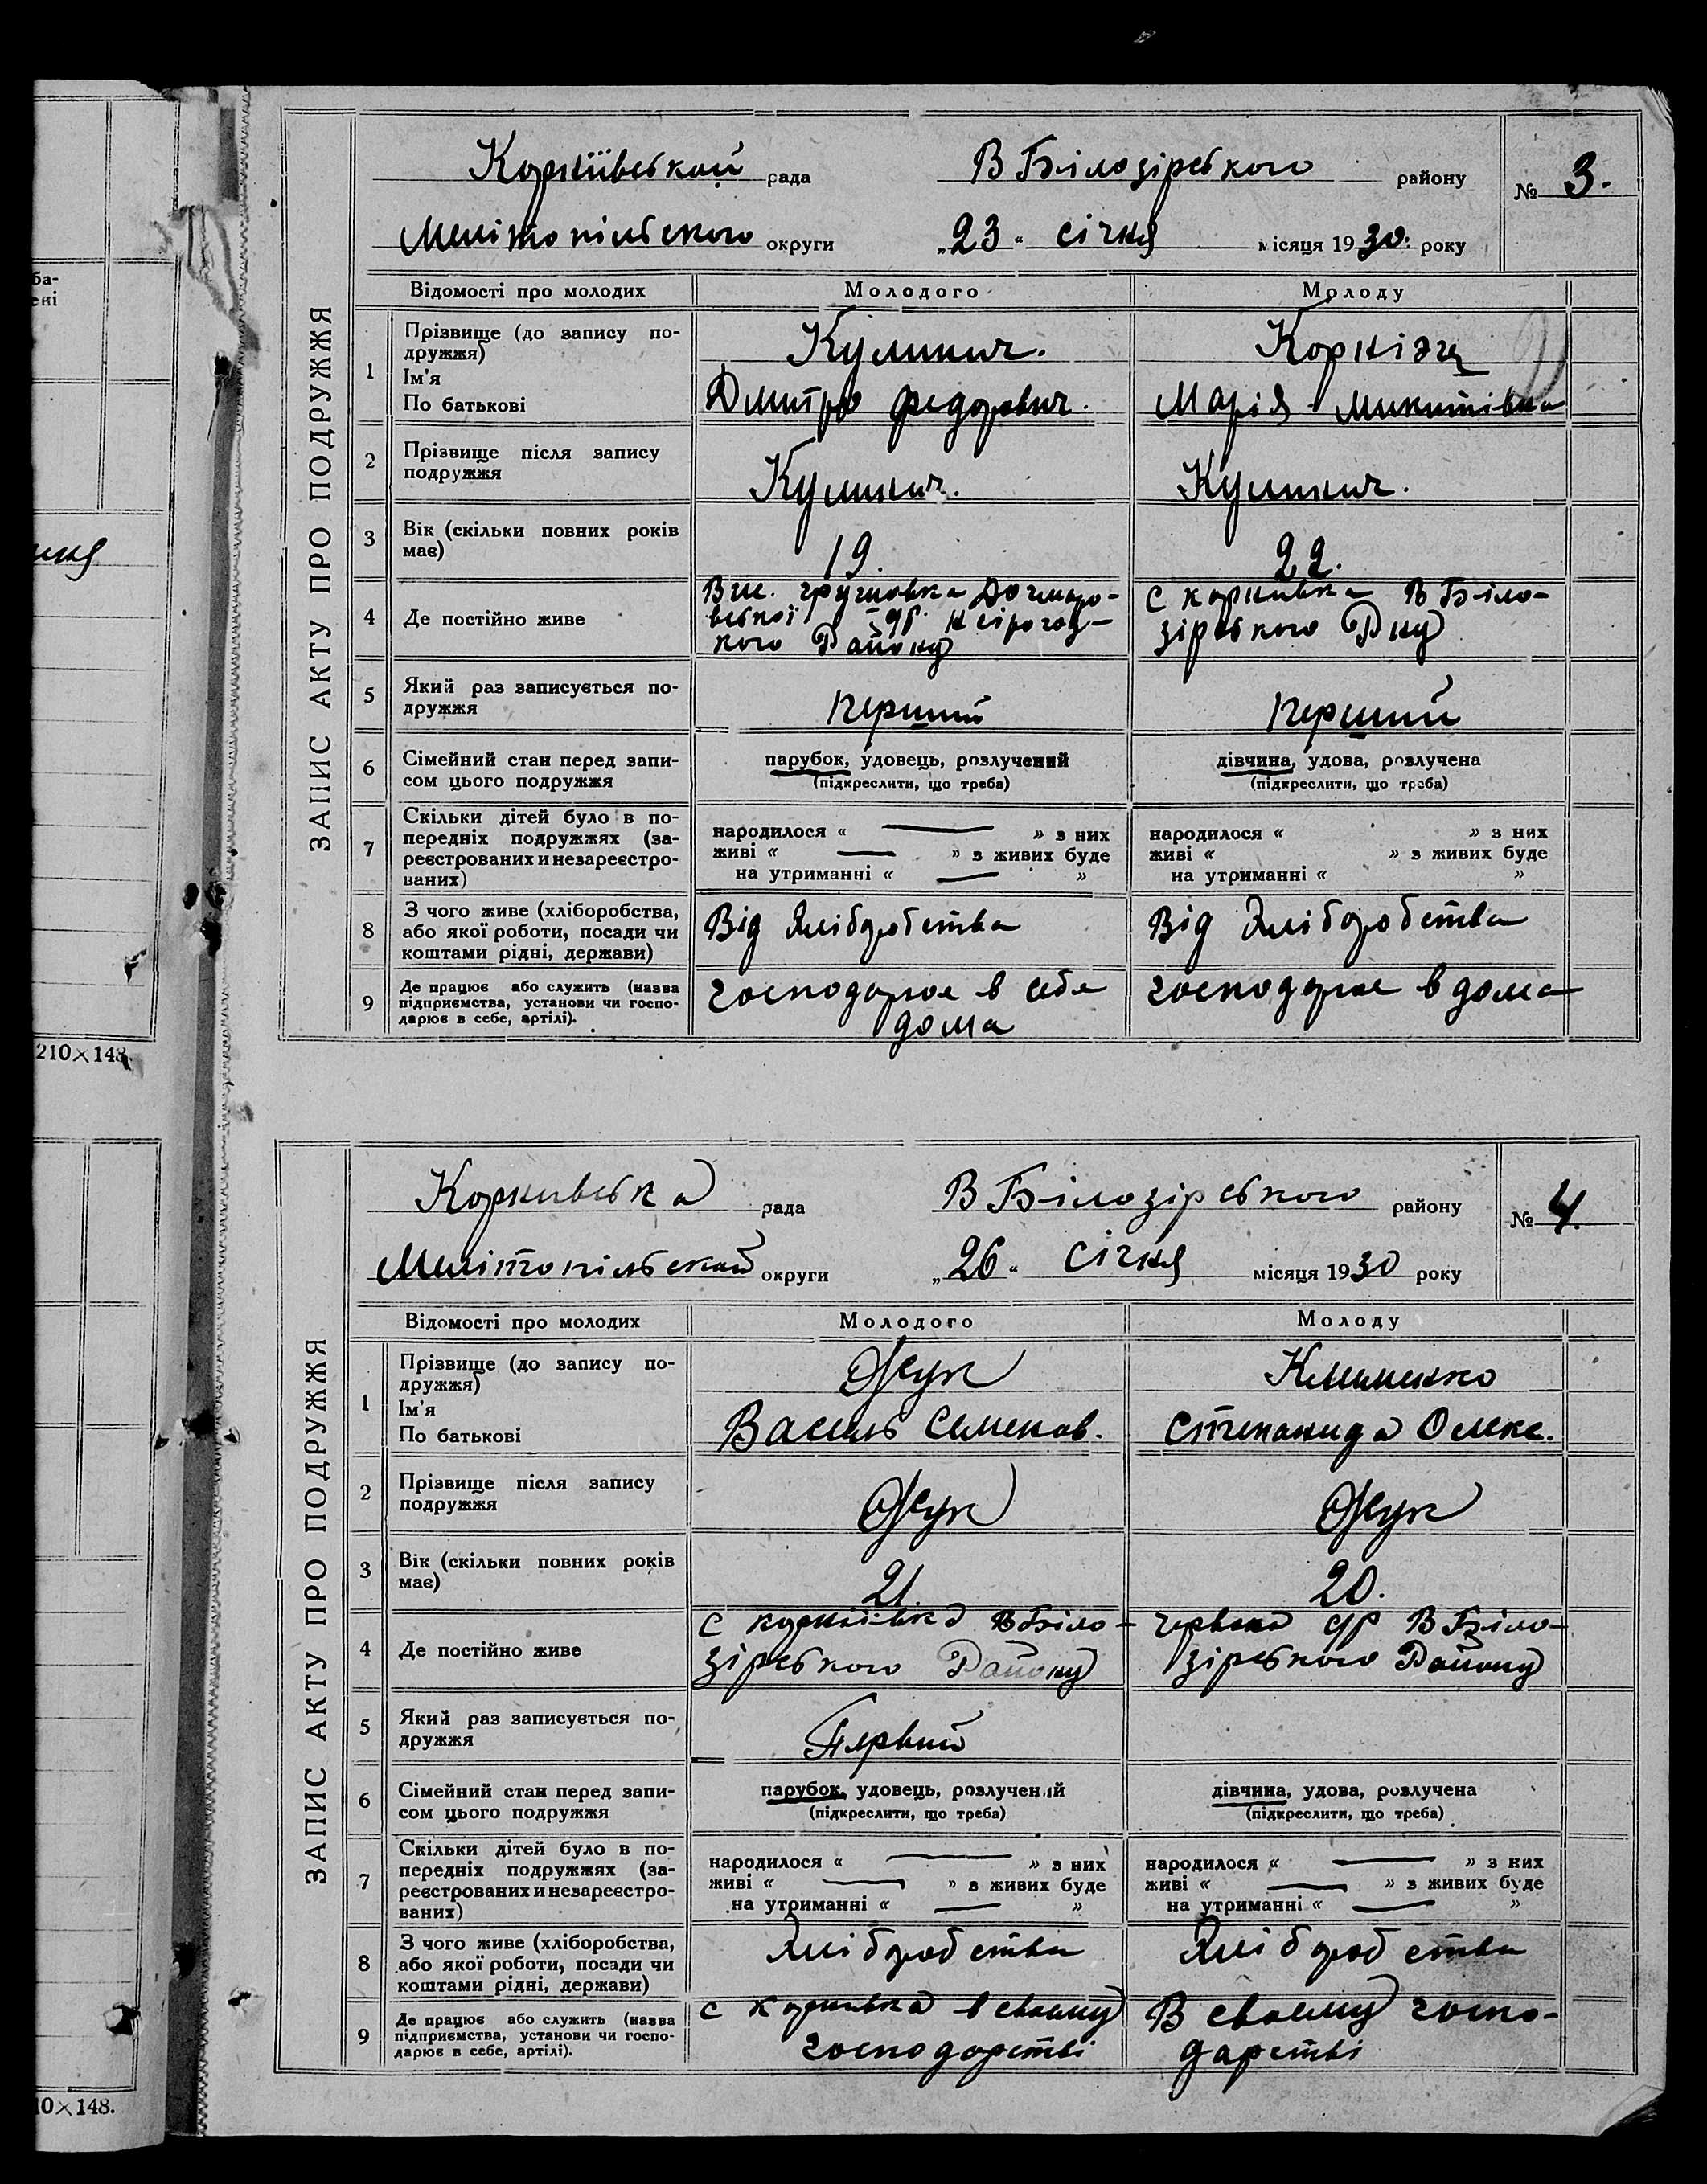 ба-
ені
210×148.
10×148.
ЗАПИС АКТУ ПРО ПОДРУЖЖЯ
Корніївської рада В Білозірського району № 3.
Мелітопільского округи „23“ січня місяця 1930. року
Відомості про молодих Молодого Молоду
1 Прізвище (до запису по-
дружжя) Кулинич.
Ім'я
По батькові Дмитро Федорович. Марія Микитівна
2 Прізвище після запису
подружжя Кулинич. Кулинич.
3 Вік (скільки повних років
має) 19. 22.
4 Де постійно живе
с корнивка В Біло-
зірского Рну
кого Району
5 Який раз записується по-
дружжя перший перший
6 Сімейний стан перед запи-
сом цього подружжя
парубок, удовець, розлучений дівчина, удова, розлучена
(підкреслити, що треба) (підкреслити, що треба)
7 Скільки дітей було в по-
передніх подружжях (за-
реєстрованих и незареєстро-
ваних)
народилося « — » з них народилося « » з них
живі « — » з живих буде живі « » з живих буде
на утриманні « — » на утриманні « »
8 З чого живе (хліборобства,
або якої роботи, посади чи
коштами рідні, держави)
Від Хліборобства Від Хліборобства
9 Де працює або служить (назва
підприємства, установи чи госпо-
дарює в себе, артілі).
господарює в себе господарює в дома
дома
ЗАПИС АКТУ ПРО ПОДРУЖЖЯ
Корнивська рада В Білозірського району № 4.
Мелітопільской округи „26“ січня місяця 1930 року
Відомості про молодих Молодого Молоду
1 Прізвище (до запису по-
дружжя) Жук Клименко
Ім'я
По батькові Василь Семенов. Степанида Олекс.
2 Прізвище після запису
подружжя Жук Жук
3 Вік (скільки повних років
має) 21. 20.
4 Де постійно живе
с корніївка В Біло- с/р В Біло-
зірського Району зірського Району
5 Який раз записується по-
дружжя Первий
6 Сімейний стан перед запи-
сом цього подружжя
парубок, удовець, розлучений дівчина, удова, розлучена
(підкреслити, що треба) (підкреслити, що треба)
7 Скільки дітей було в по-
передніх подружжях (за-
реєстрованих и незареєстро-
ваних)
народилося « — » з них народилося « — » з них
живі « — » з живих буде живі « — » з живих буде
на утриманні « — » на утриманні « — »
8 З чого живе (хліборобства,
або якої роботи, посади чи
коштами рідні, держави)
Хліборобства Хліборобства
9 Де працює або служить (назва
підприємства, установи чи госпо-
дарює в себе, артілі).
с корнивка в своєму В своєму госпо-
господарстві дарстві